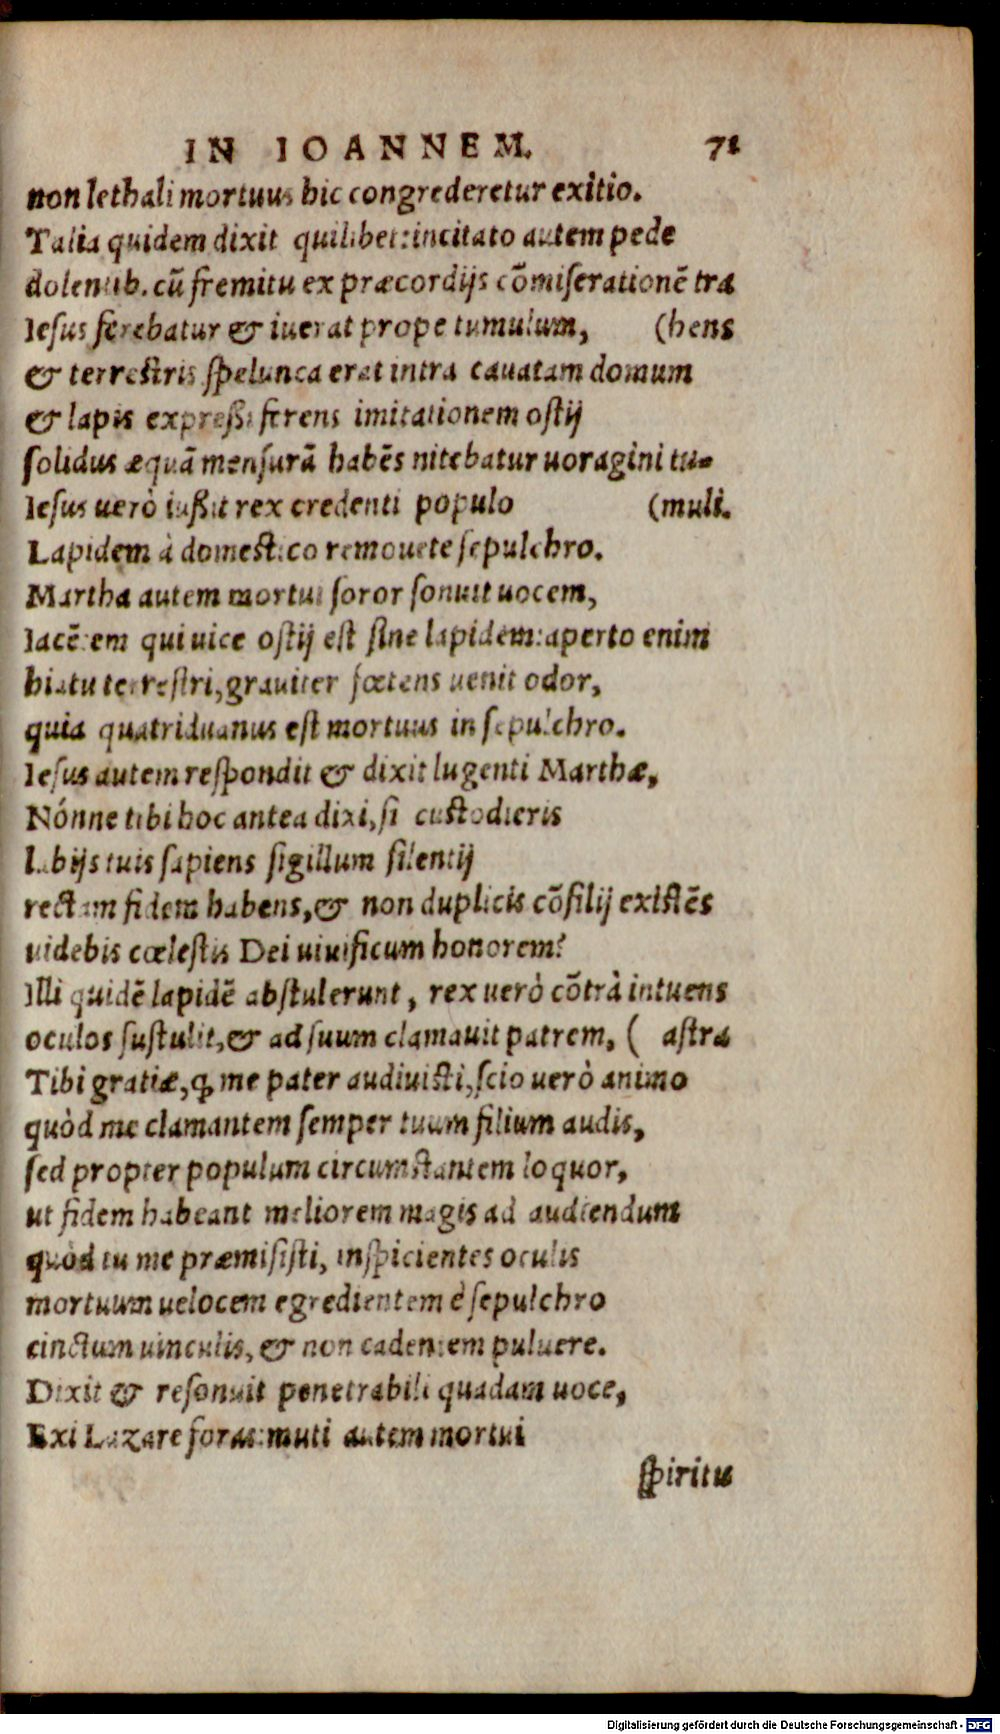 IN IOANNEM. 71
non lethali mortuus hic congrederetur exitio.
Talia quidem dixit quilibet: incitato autem pede
dolentib. cũ fremitu ex præcordijs cõmiserationẽ tra
Iesus ferebatur & iuerat prope tumulum, (hens
& terrestris spelunca erat intra cauatam domum
& lapis expreßi ferens imitationem ostij
solidus æquã mensurã habẽs nitebatur uoragini tu-
Iesus uerò iußit rex credenti populo (muli.
Lapidem à domestico remouete sepulchro.
Martha autem mortui soror sonuit uocem,
Iacẽtem qui uice ostij est sine lapidem: aperto enim
hiatu terrestri, grauiter fœtens uenit odor,
quia quatriduanus est mortuus in sepulchro.
Iesus autem respondit & dixit lugenti Marthæ,
Nónne tibi hoc antea dixi, si custodieris
labijs tuis sapiens sigillum silentij
rectam fidem habens, & non duplicis cõsilij existẽs
uidebis cœlestis Dei uiuificum honorem?
Illi quidẽ lapidẽ abstulerunt, rex uerò cõtrà intuens
oculos sustulit, & ad suum clamauit patrem, ( astra
Tibi gratiæ, ꝙ me pater audiuisti, scio uerò animo
quòd me clamantem semper tuum filium audis,
sed propter populum circumstantem loquor,
ut fidem habeant meliorem magis ad audiendum
quòd tu me præmisisti, inspicientes oculis
mortuum uelocem egredientem è sepulchro
cinctum uinculis, & non cadentem puluere.
Dixit & resonuit penetrabili quadam uoce,
Exi Lazare foras: muti autem mortui
spiritu
Digitalisierung gefördert durch die Deutsche Forschungsgemeinschaft - DFG